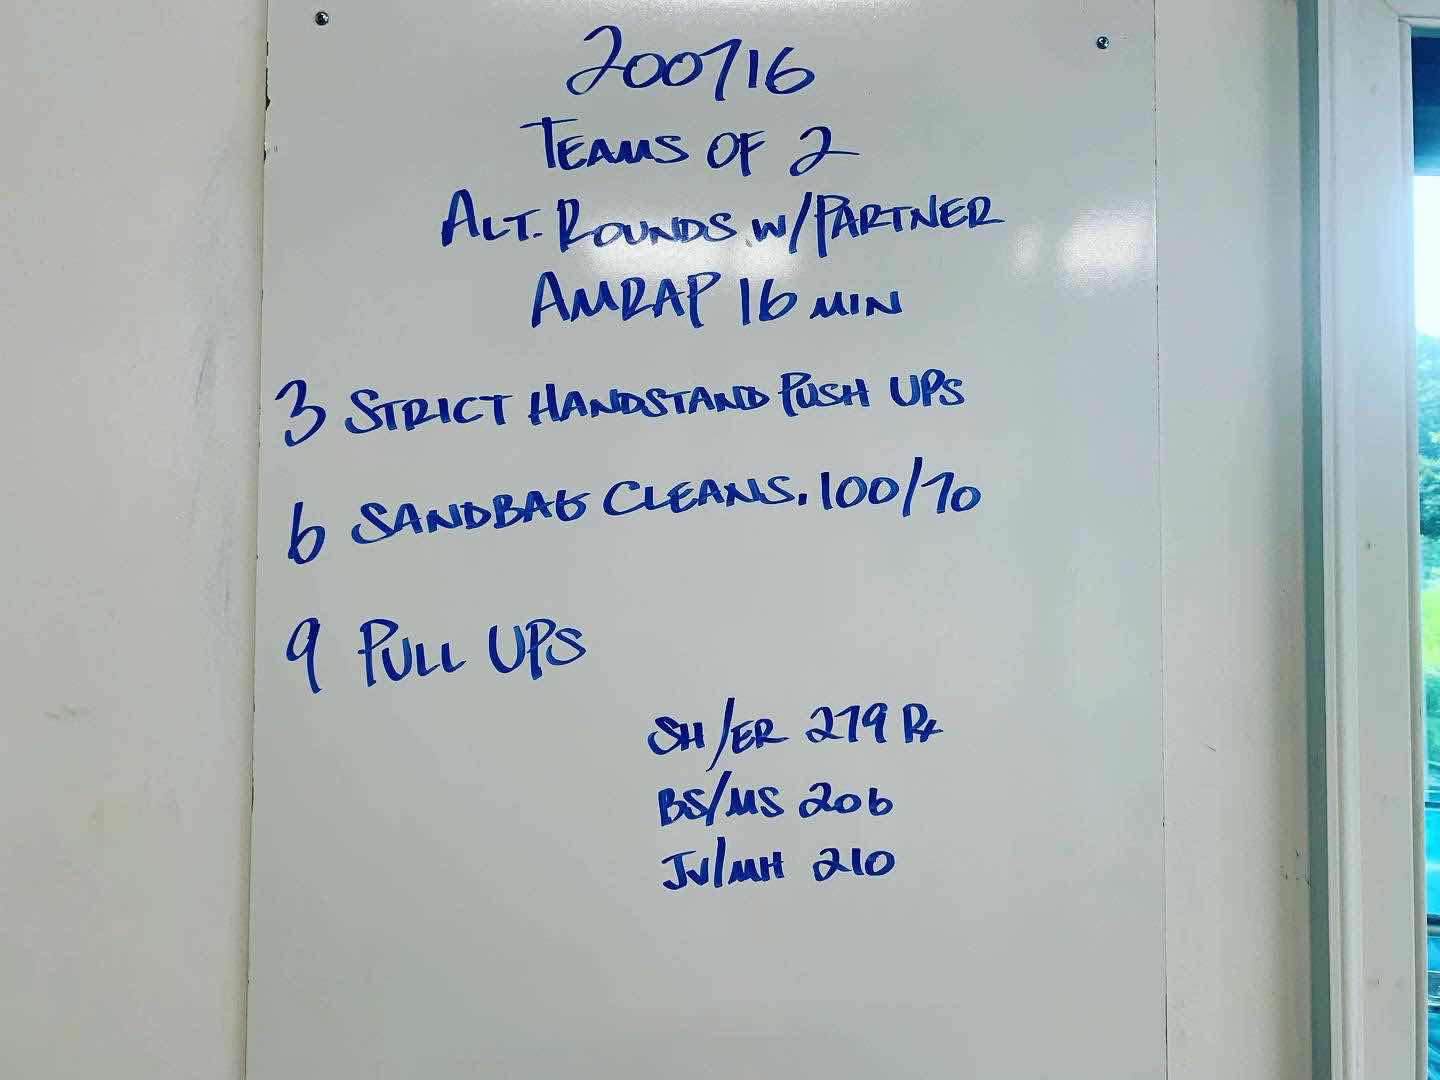 200716
TEAMS OF 2
ALT. ROUNDS w/PARTNER
AMRAP 16 MIN
3 STRICT HANDSTAND PUSH UPS
6 SANDBAG CLEANS. 100/70
9 PULL UPS
SH/ER 279 Rx
BS/MS 206
JV/MH 210